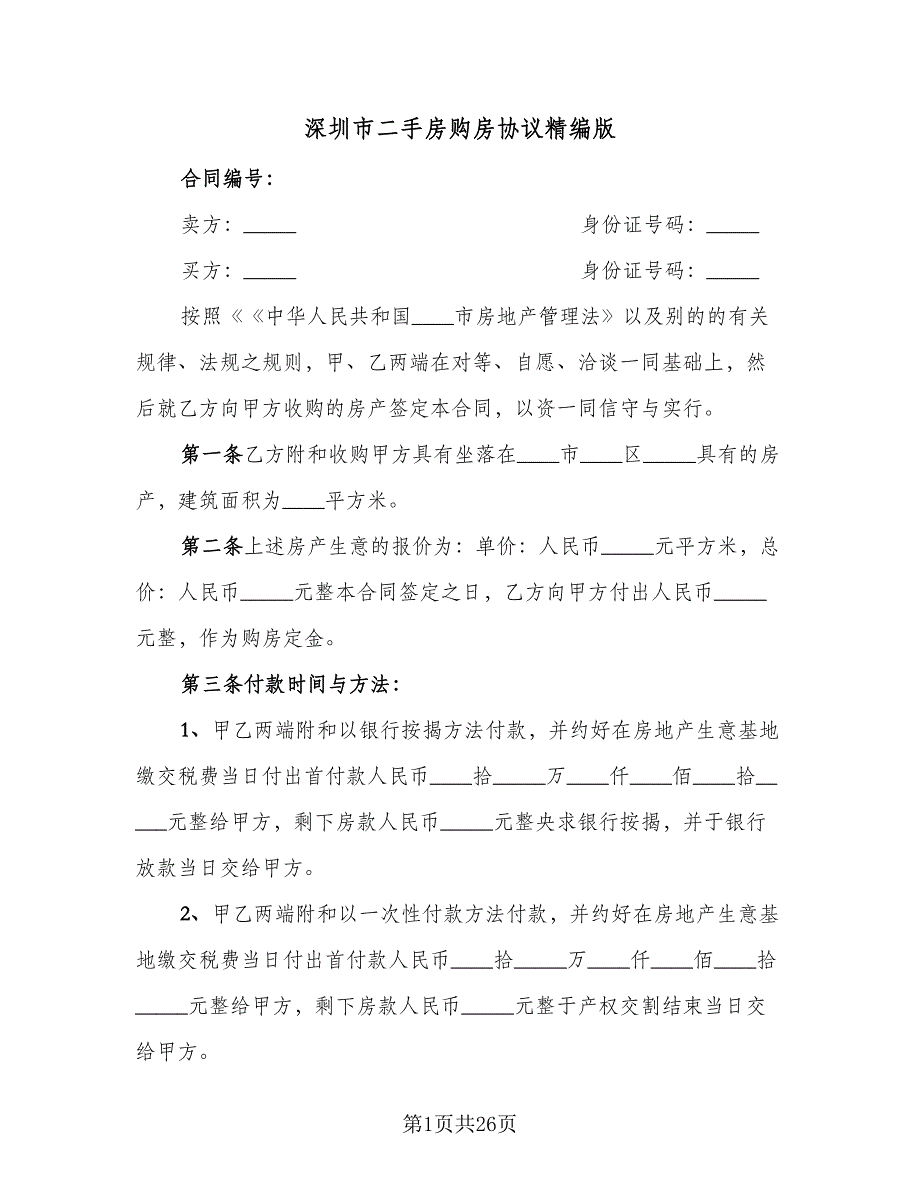 深圳市二手房购房协议精编版
合同编号：
卖方：_____ 身份证号码：_____
买方：_____ 身份证号码：_____
按照《《中华人民共和国____市房地产管理法》以及别的的有关
规律、法规之规则，甲、乙两端在对等、自愿、洽谈一同基础上，然
后就乙方向甲方收购的房产签定本合同，以资一同信守与实行。
第一条乙方附和收购甲方具有坐落在____市____区_____具有的房
产，建筑面积为____平方米。
第二条上述房产生意的报价为：单价：人民币_____元平方米，总
价：人民币_____元整本合同签定之日，乙方向甲方付出人民币_____
元整，作为购房定金。
第三条付款时间与方法：
1、甲乙两端附和以银行按揭方法付款，并约好在房地产生意基地
缴交税费当日付出首付款人民币____拾_____万____仟____佰____拾__
___元整给甲方，剩下房款人民币_____元整央求银行按揭，并于银行
放款当日交给甲方。
2、甲乙两端附和以一次性付款方法付款，并约好在房地产生意基
地缴交税费当日付出首付款人民币____拾_____万____仟____佰____拾
_____元整给甲方，剩下房款人民币_____元整于产权交割结束当日交
给甲方。
第1页共26页